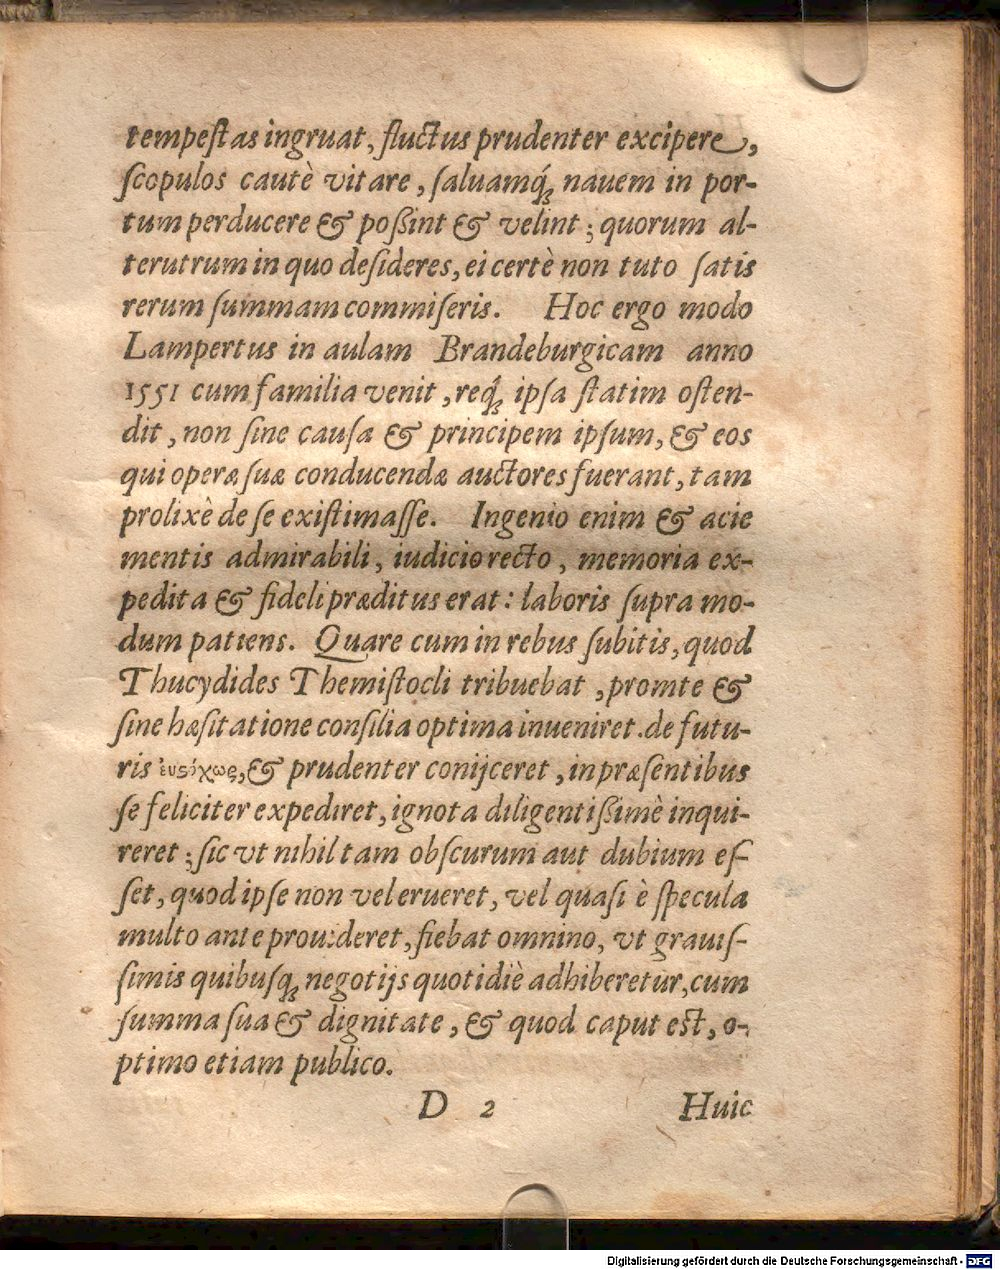 tempeſtas ingruat, fluctus prudenter excipere,
ſcopulos cautè vitare, ſaluamq́; nauem in por-
tum perducere & poßint & velint; quorum al-
terutrum in quo deſideres, ei certè non tuto ſatis
rerum ſummam commiſeris. Hoc ergo modo
Lampertus in aulam Brandeburgicam anno
1551 cum familia venit, req́; ipſa ſtatim oſten-
dit, non ſine cauſa & principem ipſum, & eos
qui operæ ſuæ conducendæ auctores fuerant, tam
prolixè de ſe exiſtimaſſe. Ingenio enim & acie
mentis admirabili, iudicio recto, memoria ex-
pedita & fideli præditus erat: laboris ſupra mo-
dum patiens. Quare cum in rebus ſubitis, quod
Thucydides Themiſtocli tribuebat, promte &
ſine hæſitatione conſilia optima inueniret. de futu-
ris ἐυϛόχως, & prudenter conijceret, in præſentibus
ſe feliciter expediret, ignota diligentißimè inqui-
reret; ſic vt nihil tam obſcurum aut dubium eſ-
ſet, quod ipſe non vel erueret, vel quaſi è ſpecula
multo ante prouideret, fiebat omnino, vt grauiſ-
ſimis quibuſq; negotijs quotidiè adhiberetur, cum
ſumma ſua & dignitate, & quod caput eſt, o-
ptimo etiam publico.
D 2 Huic
Digitalisierung gefördert durch die Deutsche Forschungsgemeinschaft - DFG